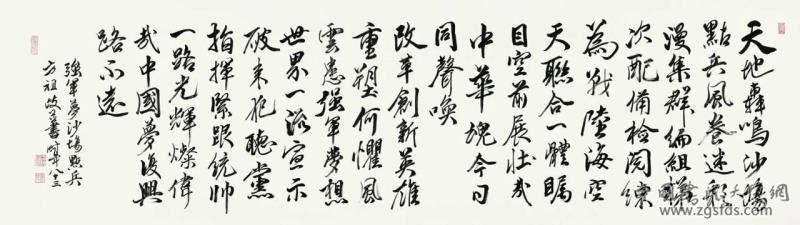 天地轟鳴沙場
點兵風卷迷彩
漫集群編組
次配備檢閱練
為戰陸海空
天聯合一體矚
目空前展壯哉
中華塊今日
同聲喚
改革創新英雄
重塑何懼風
雲患强軍夢想
世界一流宣示
破来犯聽黨
指揮緊跟統帥
一路光輝燦偉
哉中國夢復興
路不遠
強軍夢沙場點兵
方祖岐書時年八三
www.zgsfds.com